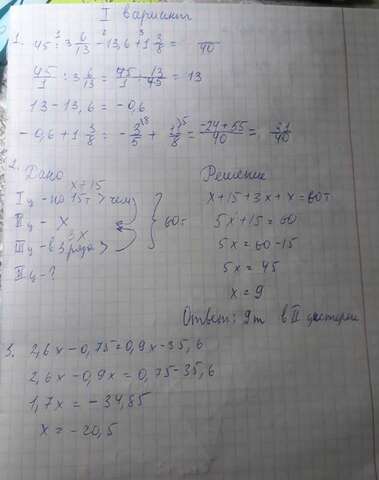 I вариант
1. 45 : 3 6/13 - 13,6 + 1 3/8 = /40
45/1 : 3 6/13 = 45/1 · 13/45 = 13
13 - 13,6 = -0,6
-0,6 + 1 3/8 = -3/5 + 11/8 = -24+55/40 = 31/40
2. Дано
x+15
I ц - на 15т > чем
II ц - x
3x
III ц - в 3 раза >
60т
II ц - ?
Решение
x + 15 + 3x + x = 60т
5x + 15 = 60
5x = 60 - 15
5x = 45
x = 9
Ответ: 9т в II цистерне
3. 2,6x - 0,75 = 0,9x - 35,6
2,6x - 0,9x = 0,75 - 35,6
1,7x = -34,85
x = -20,5